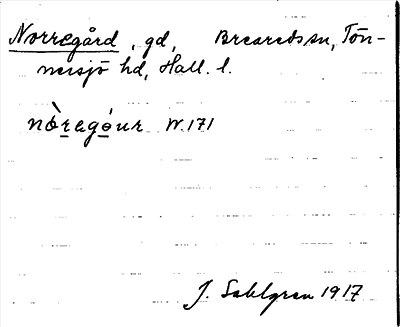 Norregård, gd, Breareds sn, Tön-
nersjö hd, Hall. l.
nò̱regó̱ur W. 171
J. Sahlgren 1917